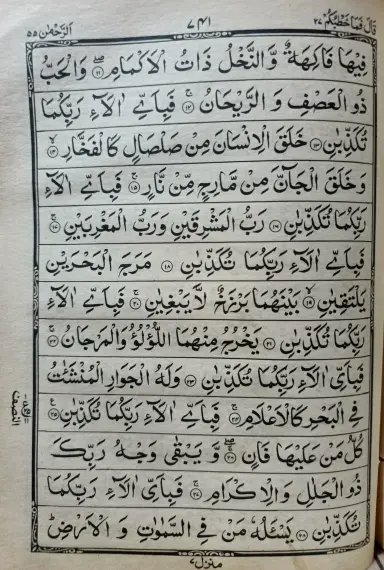 قَالَ فَمَا خَطْبُكُمْ ٢٧ ٧٤١ اَلرَّحْمٰن ٥٥
فِيْهَا فَاكِهَةٌ وَّ النَّخْلُ ذَاتُ الْاَكْمَامِ ۝١١ وَالْحَبُّ
ذُو الْعَصْفِ وَ الرَّيْحَانُ ۝١٢ فَبِاَيِّ اٰلَآءِ رَبِّكُمَا
تُكَذِّبٰنِ ۝١٣ خَلَقَ الْاِنْسَانَ مِنْ صَلْصَالٍ كَالْفَخَّارِ ۝١٤
وَ خَلَقَ الْجَآنَّ مِنْ مَّارِجٍ مِّنْ نَّارٍ ۝١٥ فَبِاَيِّ اٰلَآءِ
رَبِّكُمَا تُكَذِّبٰنِ ۝١٦ رَبُّ الْمَشْرِقَيْنِ وَرَبُّ الْمَغْرِبَيْنِ ۝١٧
فَبِاَيِّ اٰلَآءِ رَبِّكُمَا تُكَذِّبٰنِ ۝١٨ مَرَجَ الْبَحْرَيْنِ
يَلْتَقِيٰنِ ۝١٩ بَيْنَهُمَا بَرْزَخٌ لَّا يَبْغِيٰنِ ۝٢٠ فَبِاَيِّ اٰلَآءِ
رَبِّكُمَا تُكَذِّبٰنِ ۝٢١ يَخْرُجُ مِنْهُمَا اللُّؤْلُؤُ وَالْمَرْجَانُ ۝٢٢
فَبِاَيِّ اٰلَآءِ رَبِّكُمَا تُكَذِّبٰنِ ۝٢٣ وَلَهُ الْجَوَارِ الْمُنْشَئٰتُ
فِي الْبَحْرِ كَالْاَعْلَامِ ۝٢٤ فَبِاَيِّ اٰلَآءِ رَبِّكُمَا تُكَذِّبٰنِ ۝٢٥
كُلُّ مَنْ عَلَيْهَا فَانٍ ۝٢٦ وَّ يَبْقٰى وَجْهُ رَبِّكَ
ذُو الْجَلٰلِ وَ الْاِكْرَامِ ۝٢٧ فَبِاَيِّ اٰلَآءِ رَبِّكُمَا
تُكَذِّبٰنِ ۝٢٨ يَسْئَلُهٗ مَنْ فِي السَّمٰوٰتِ وَ الْاَرْضِ
منزل ٧